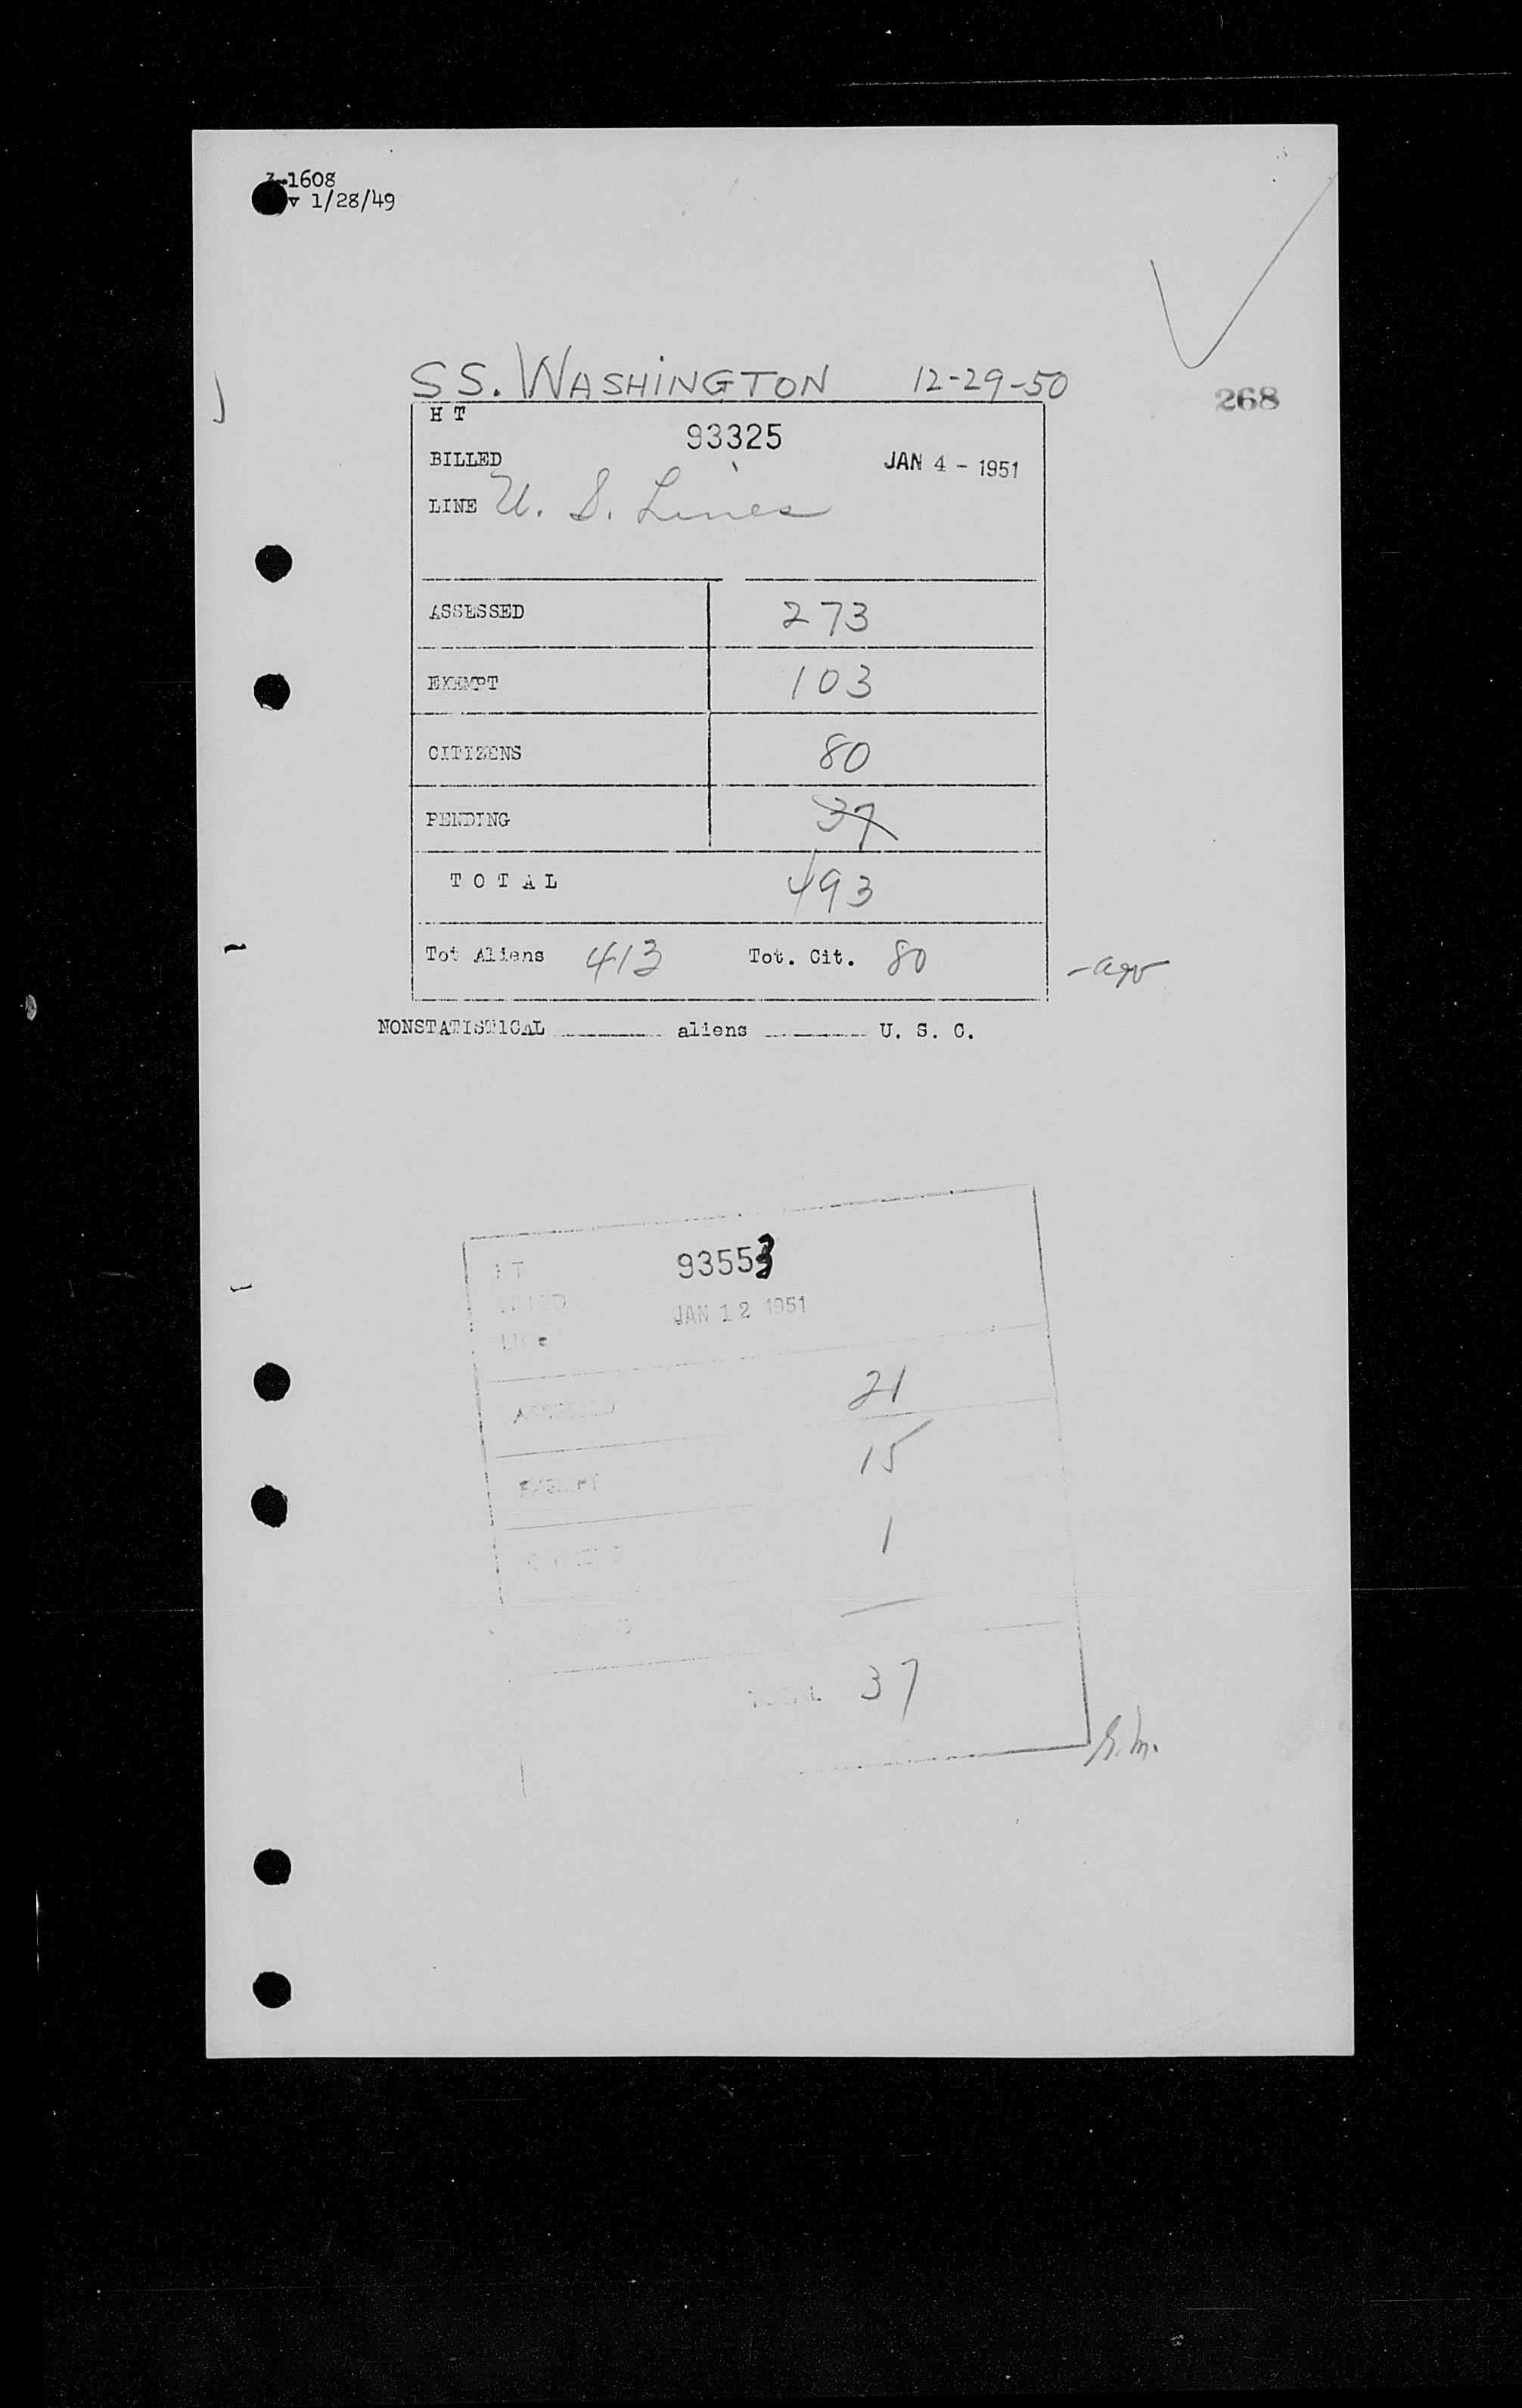 3-1608
v 1/28/49
SS. WASHINGTON 12-29-50
268
H T
93325
BILLED
JAN 4 - 1951
LINE U. S. Lines
ASSESSED 273
EXEMPT 103
CITIZENS 80
PENDING 37
TOTAL 493
Tot Aliens 413 Tot. Cit. 80
NONSTATISTICAL aliens U. S. C.
93553
JAN 12 1951
21
15
1
TOTAL 37